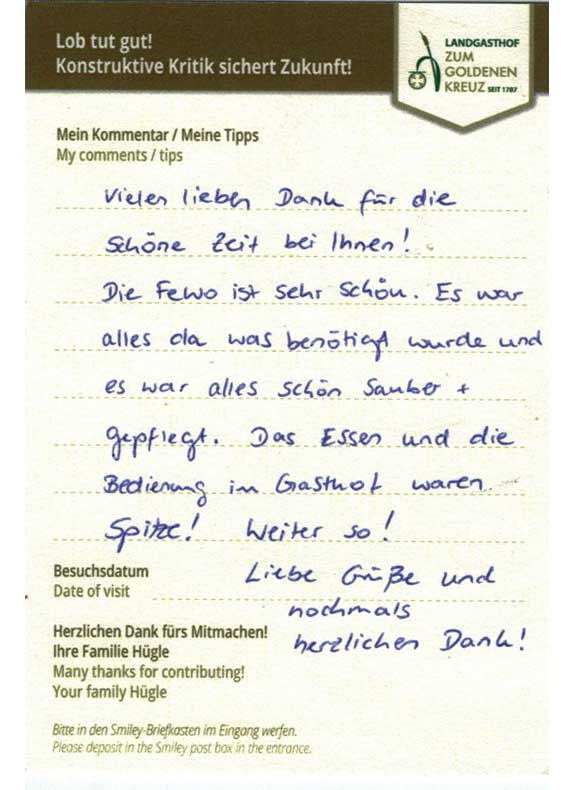 Lob tut gut!
Konstruktive Kritik sichert Zukunft!
LANDGASTHOF
ZUM
GOLDENEN
KREUZ SEIT 1787
Mein Kommentar / Meine Tipps
My comments / tips
Vielen lieben Dank für die
schöne Zeit bei Ihnen!
Die Fewo ist sehr schön. Es war
alles da was benötigt wurde und
es war alles schön sauber +
gepflegt. Das Essen und die
Bedienung im Gasthof waren
Spitze! Weiter so!
Besuchsdatum
Date of visit
Liebe Grüße und
nochmals
herzlichen Dank!
Herzlichen Dank fürs Mitmachen!
Ihre Familie Hügle
Many thanks for contributing!
Your family Hügle
Bitte in den Smiley-Briefkasten im Eingang werfen.
Please deposit in the Smiley post box in the entrance.